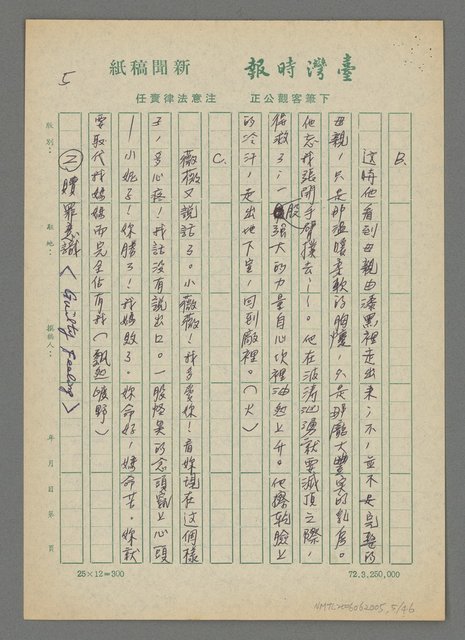 5
臺灣時報 新聞稿紙
下筆客觀公正 注意法律責任
B.
這時他看到母親由漆黑裡走出來，不，並不是完整的
母親，只是那溫暖柔軟的胸懷，只是那龐大豐實的乳房。
他忘我張開手臂撲去……。他在波濤洶湧就要滅頂之際，
得救了，一股強大的力量自心坎裡油然上升。他擦乾臉上
的冷汗，走出地下室，回到廠裡。（火）
C.
薇薇又說話了。小薇薇！我多愛你！看妳現在這個樣
子，多心疼！我話沒有說出口。一股怪異的念頭飄上心頭
—小妮子！你勝了！我媽敗了。妳命好，媽命苦。妳就
要取代我媽媽而完全佔有我（飄然曠野）
2 贖罪意識〈Guilty Feeling〉
版別：
駐地：
撰稿人：
年 月 日 第 頁
25×12=300
72.3,250,000
NMTL20060062005, 5/46